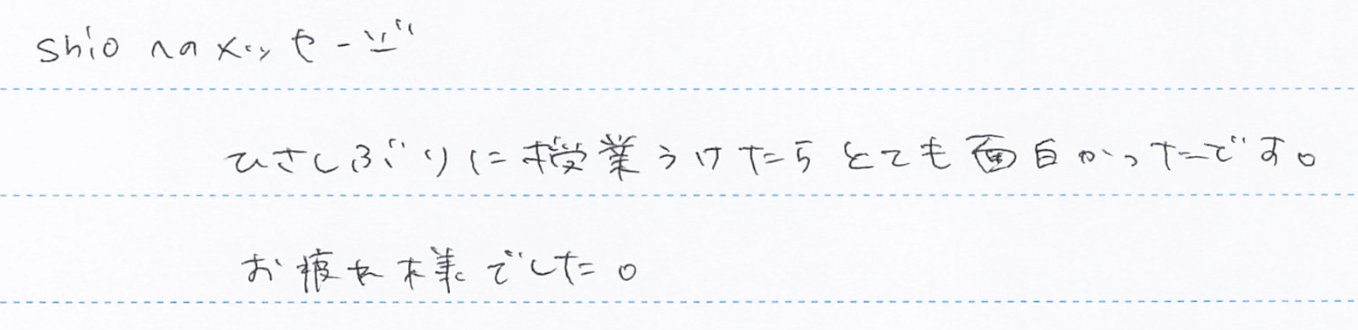 shio へのメッセージ
ひさしぶりに授業うけたらとても面白かったです。
お疲れ様でした。